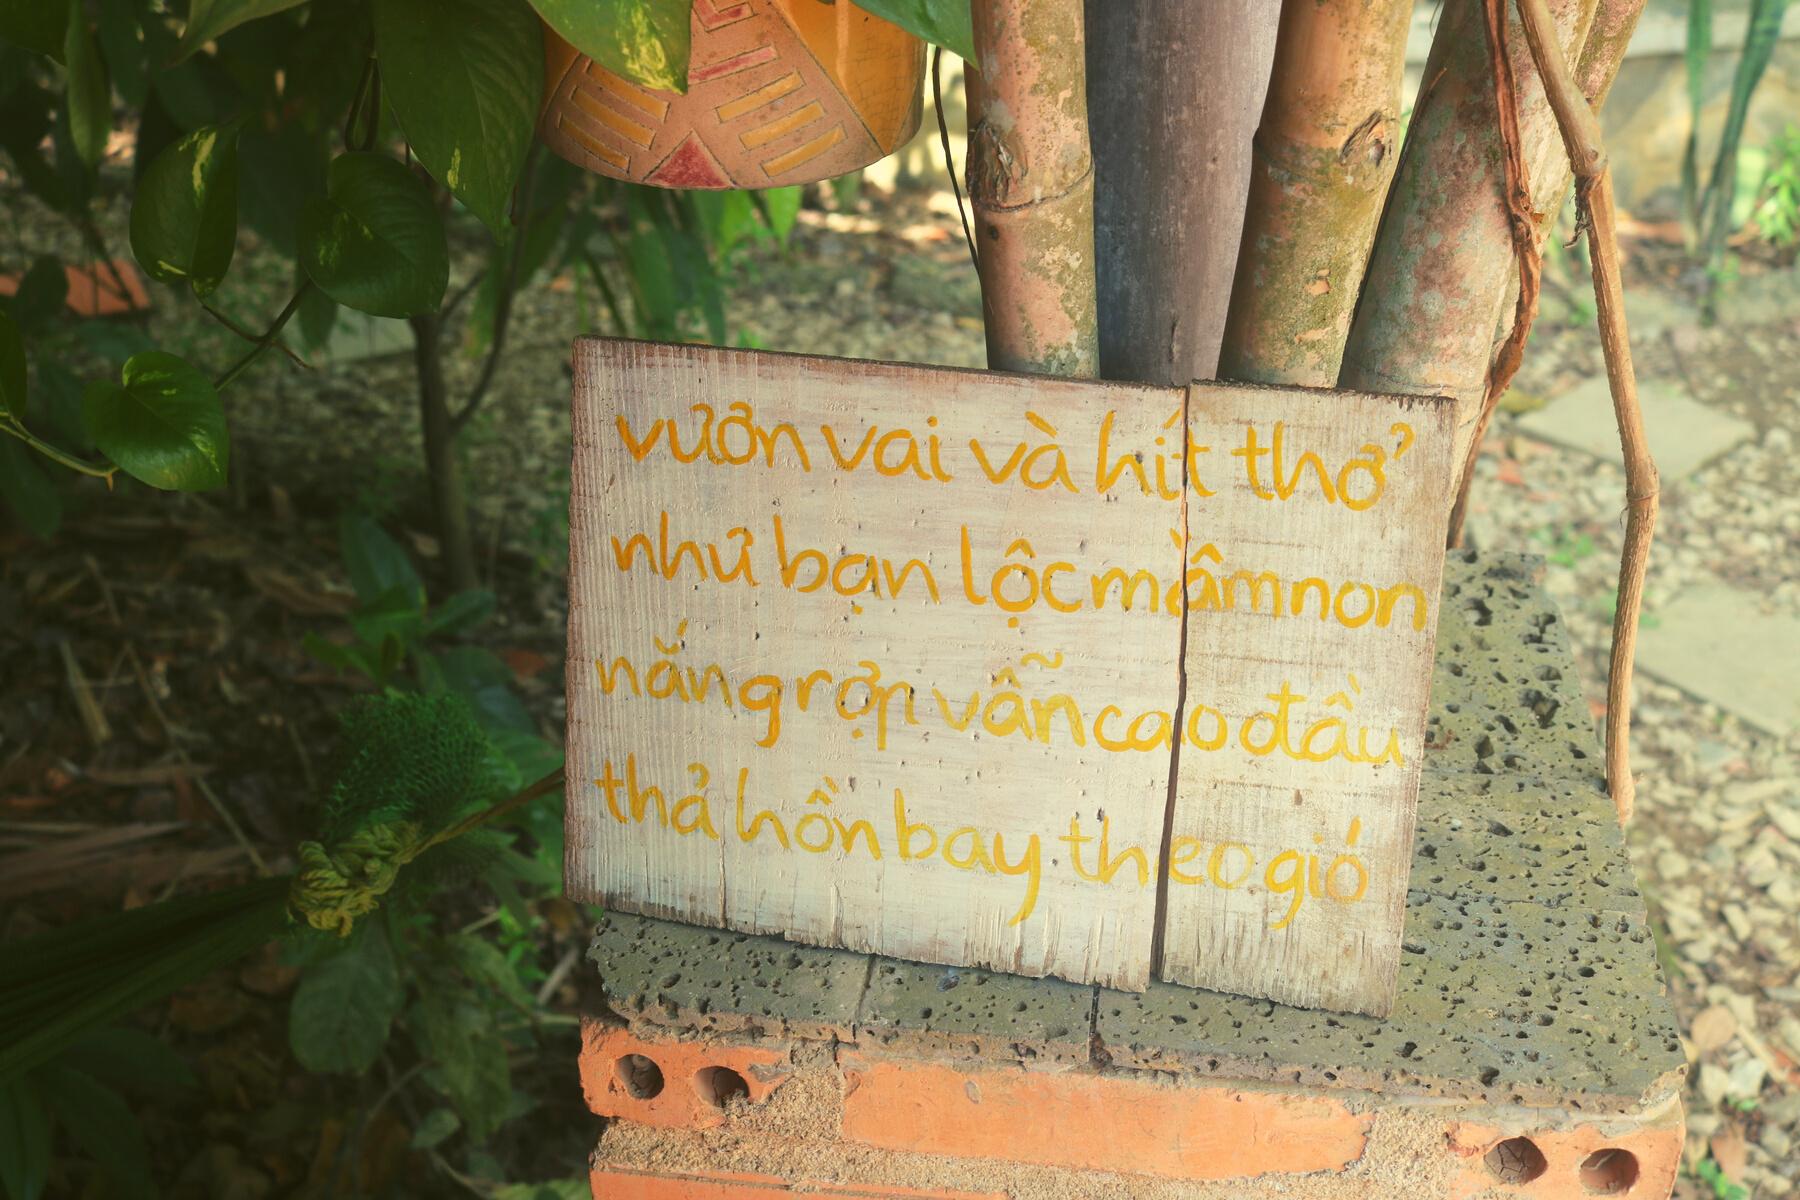 vươn vai và hít thở
như bạn lộc mầm non
nắng rợp vẫn cao đầu
thả hồn bay theo gió